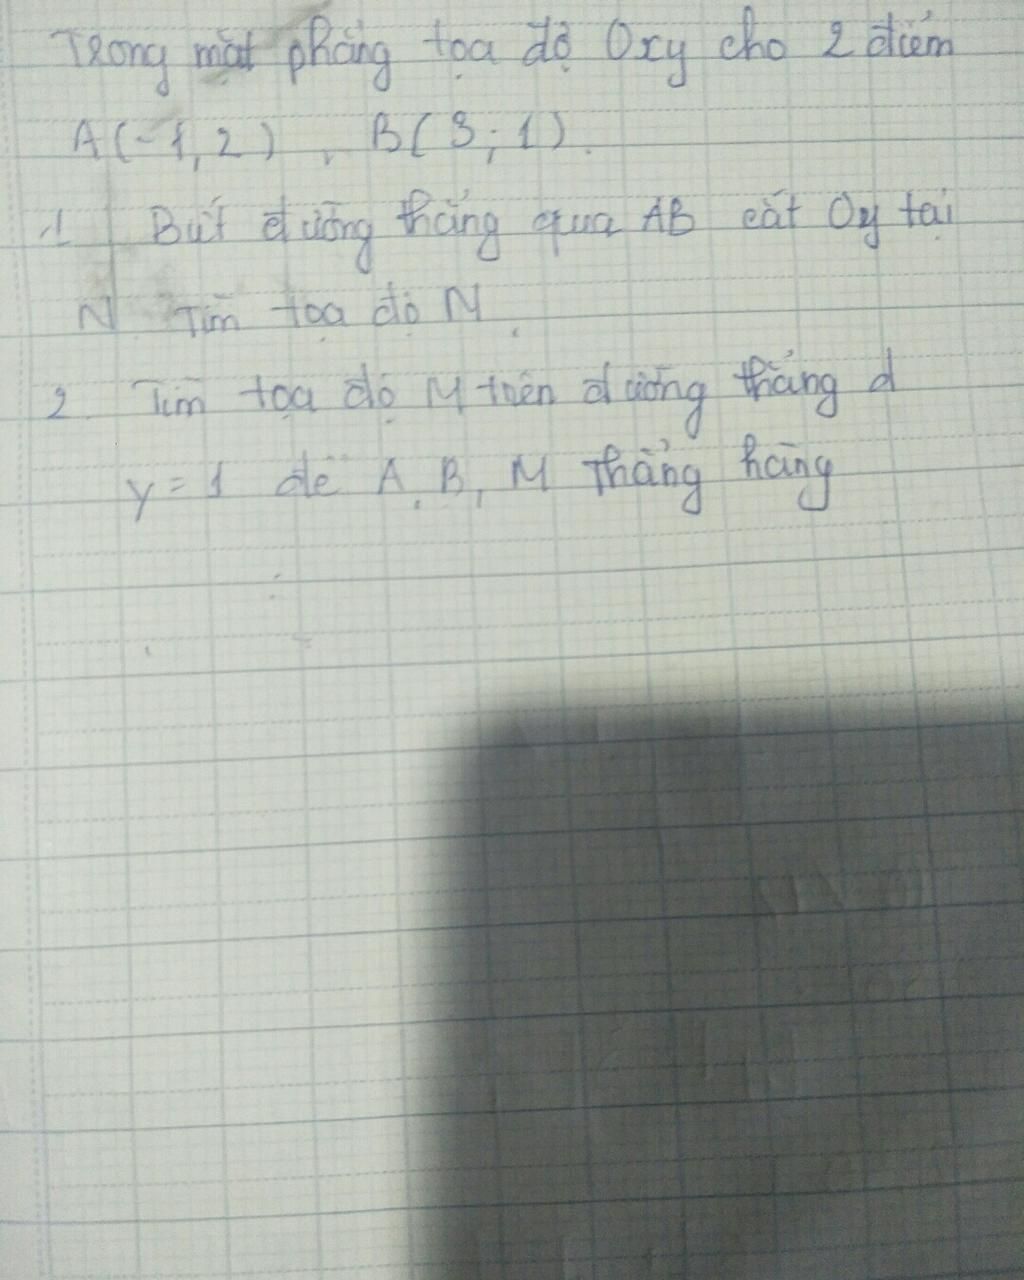 Trong mặt phẳng tọa độ Oxy cho 2 điểm
A(-1,2), B(3;1).
1 Biết đường thẳng qua AB cắt Oy tại
N Tìm tọa độ N.
2. Tìm tọa độ M trên đường thẳng d
y=1 để A, B, M Thẳng hàng